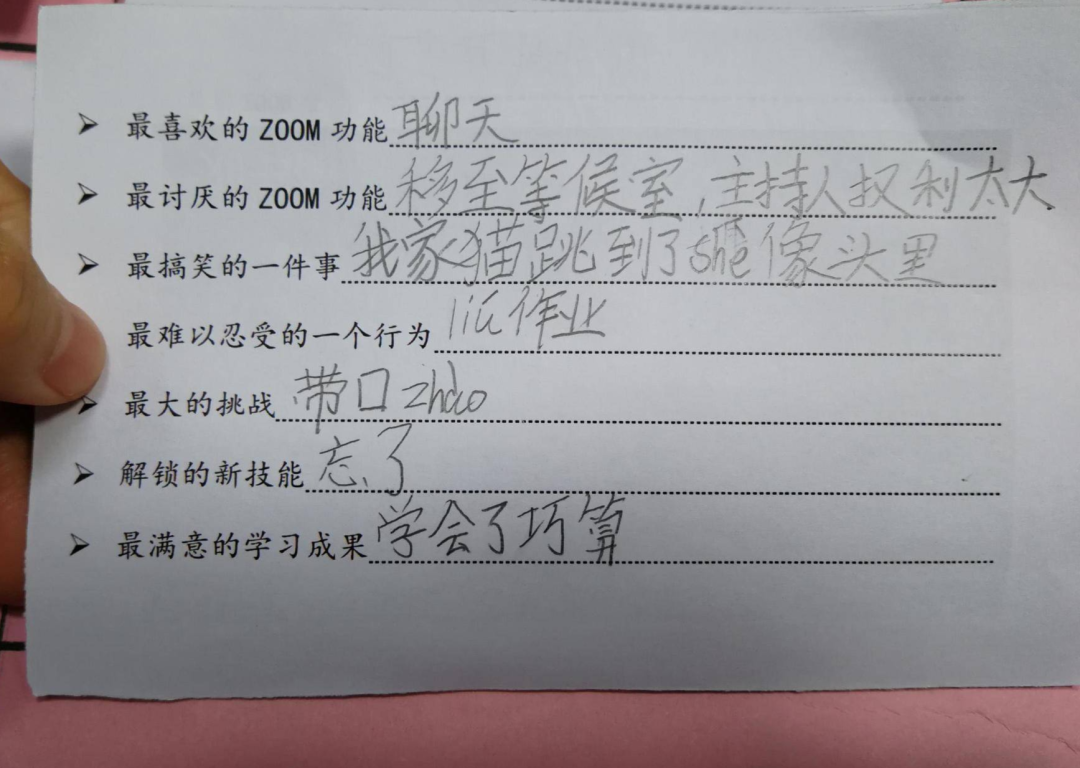 ➢ 最喜欢的 ZOOM 功能 聊天
➢ 最讨厌的 ZOOM 功能 移至等候室,主持人权利太大
➢ 最搞笑的一件事 我家猫跳到了she像头里
最难以忍受的一个行为 liu作业
➢ 最大的挑战 带口zhao
➢ 解锁的新技能 忘了
➢ 最满意的学习成果 学会了巧算